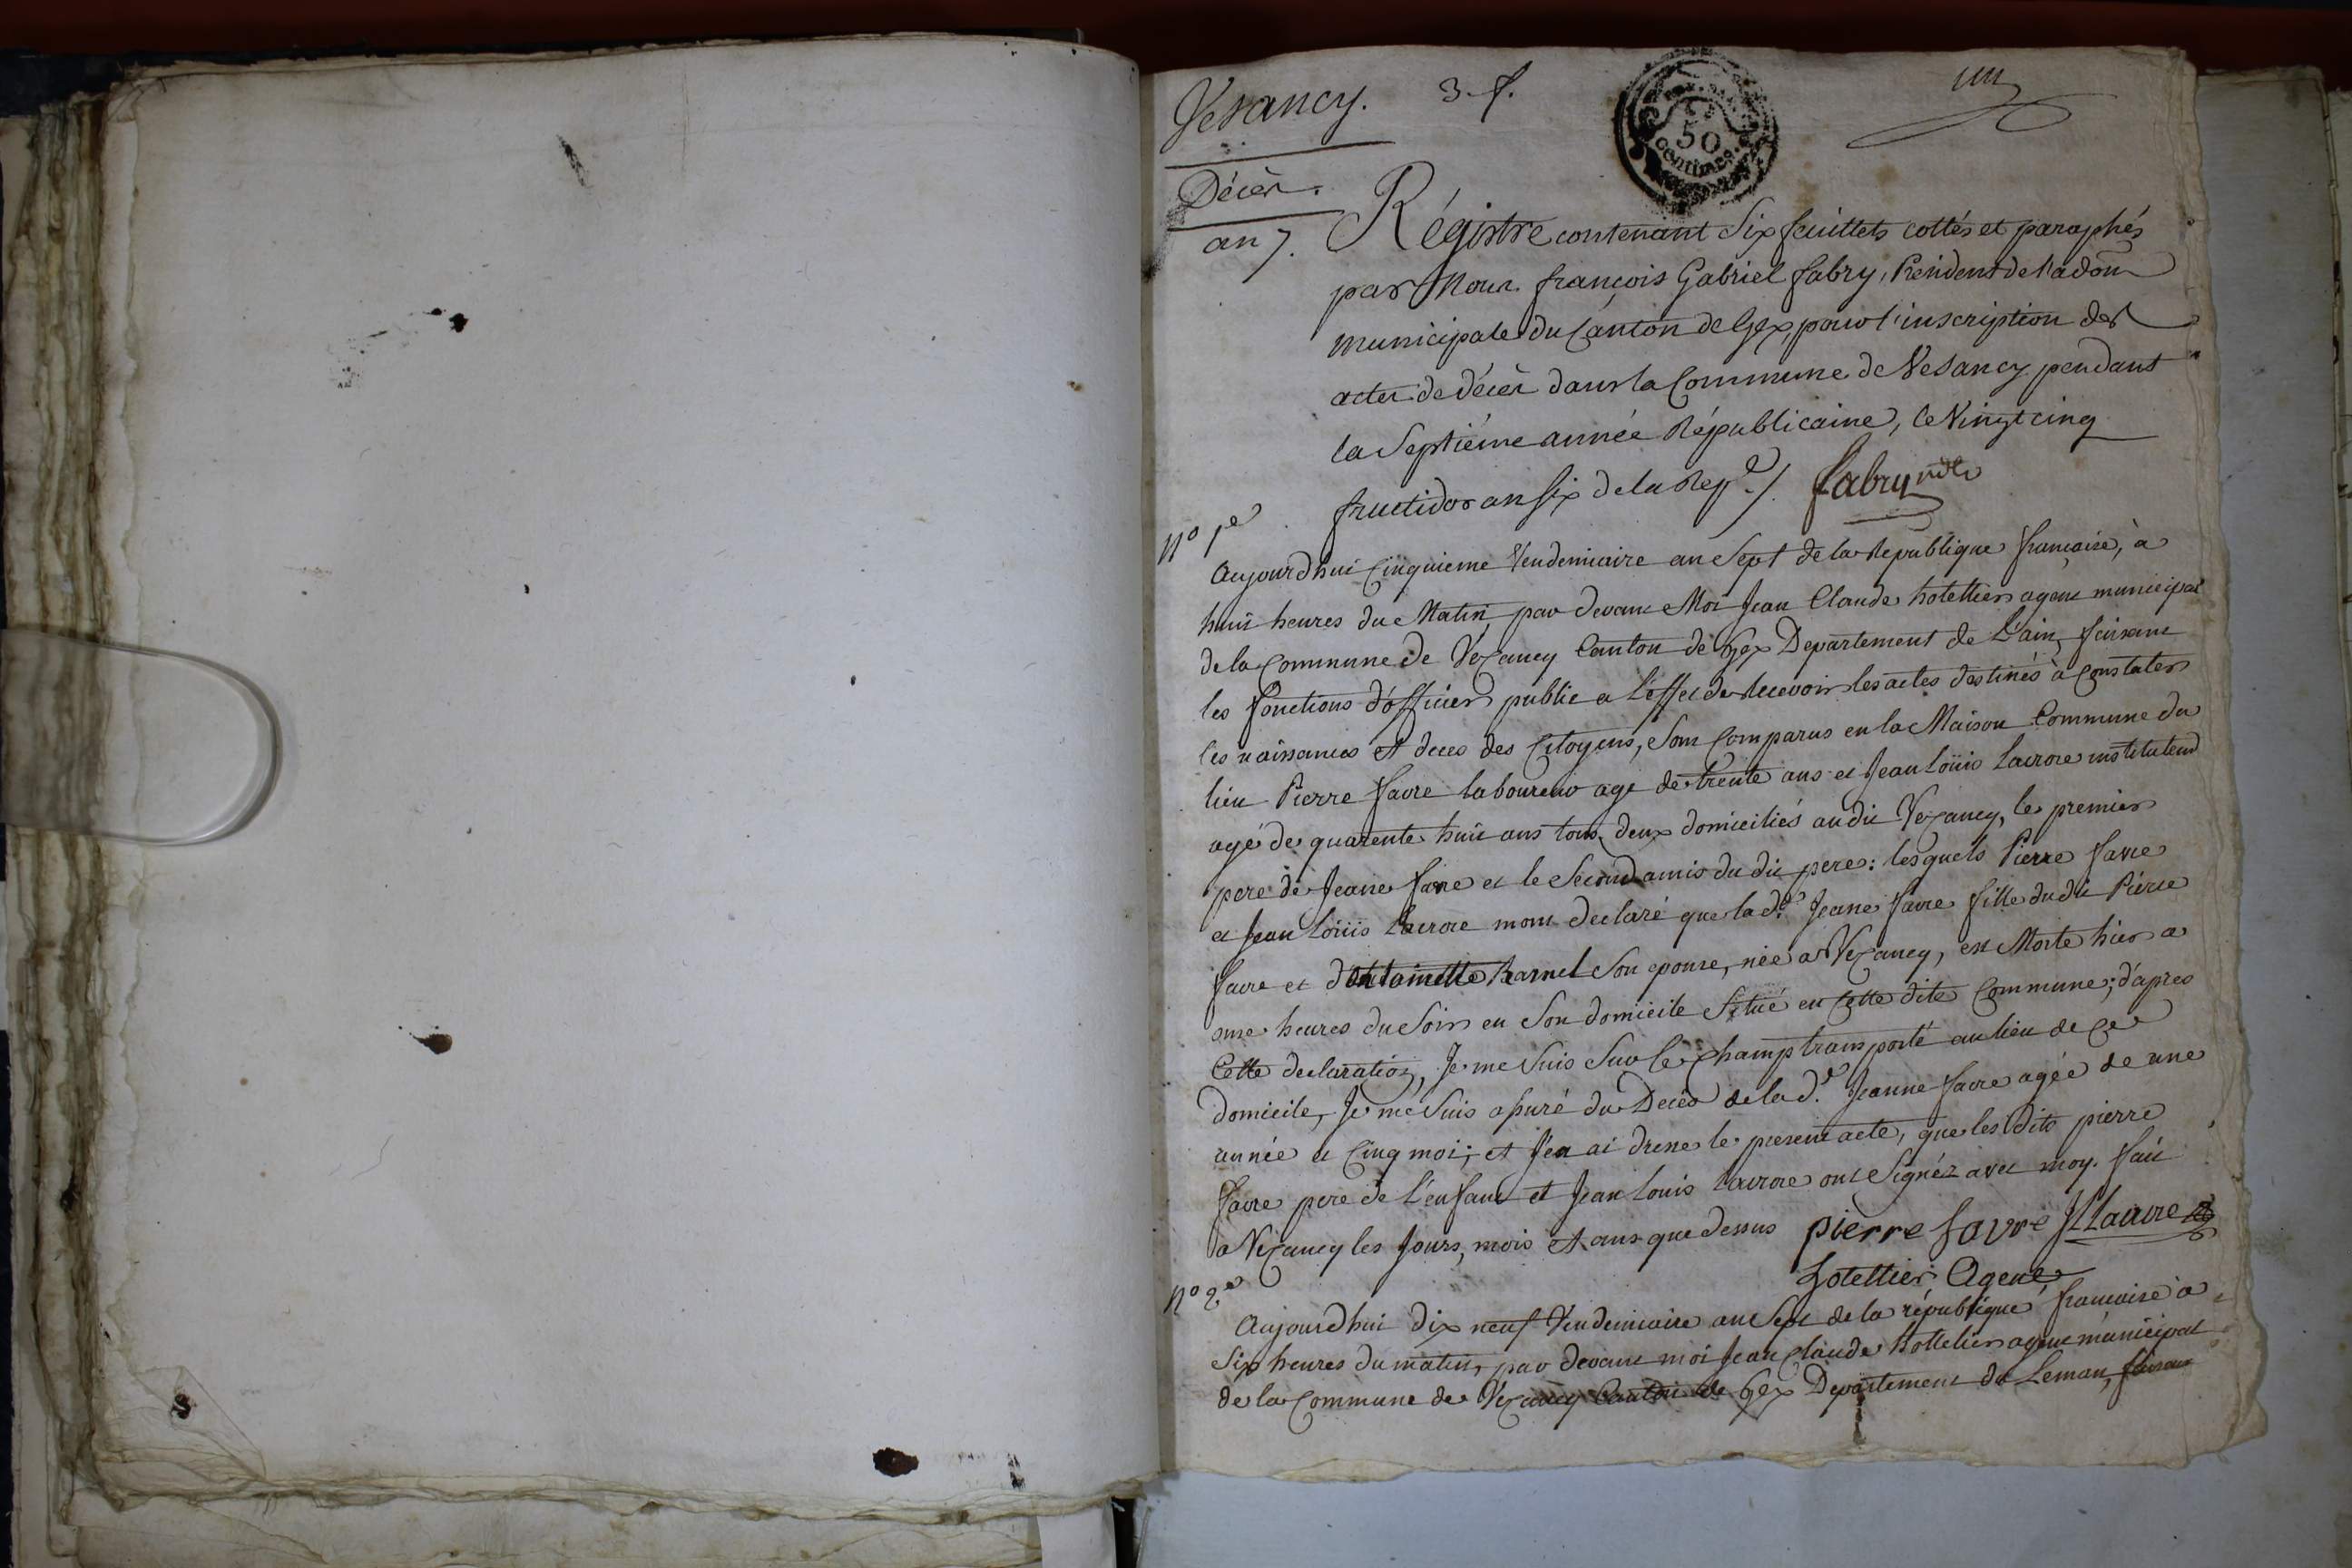 Vesancy. 3. f. un
50
centimes
Décès.
an 7.
Régistre contenant Six feuillets cottés et paraphés
par Nous françois Gabriel fabry, Président de l'adõn
municipale du Canton de Gex, pour l'inscription des
actes de décès dans la Commune de Vesancy pendant
la Septiéme année Républicaine, le Vingt cinq
fructidor an Six de la Rep.e ./. fabry
N° 1e
Aujourdhui Cinquieme Vendemiaire an Sept de la Republique francaise, à
huit heures du Matin, par devant Moi Jean Claude hotellier agent municipal
de la Commune de Vezancy Canton de Gex Departement de L'ain, faisant
les fonctions d'officier public a L'effet de Recevoir les actes destinés à Constater
les naissances et deces des Citoyens, Sont Comparus en la Maison Commune du
lieu Pierre favre laboureur agé de trente ans et Jean Loüis Lavroe instituteur
agé de quarente huit ans tous deux domiciliés au dit Vezancy, le premier
pere de Jeane favre et le Second amis du dit pere: lesquels Pierre favre
et Jean Loüis Lavroe mont declaré que la d.e Jeane favre fille du dit Pierre
favre et d'antoinette harnel Son epouse, née a Vezancy, est Morte hier a
onse heures du Soir en Son domicile Situé en Cette dite Commune; d'apres
Cette declaration, Je me Suis Sur le Champ transporté au lieu de Ce
domicile, Je me Suis assuré du Deces de la d.e Jeanne favre agée de une
année et Cinq moi; et J'en ai dressé le present acte, que les dits pierre
favre pere de L'enfant et Jean Louis Lavroe ont Signéz avec moy. fait
a Vezancy les Jours, mois et ans que dessus pierre favre
hotellier Agent
N° 2e
Aujourdhui dix neuf Vendemiaire an Sept de la république francaise à
Six heures du matin, par devant moi Jean Claude hottelier agent municipal
de la Commune de Vezancy Canton de Gex Departement du Leman, faisant